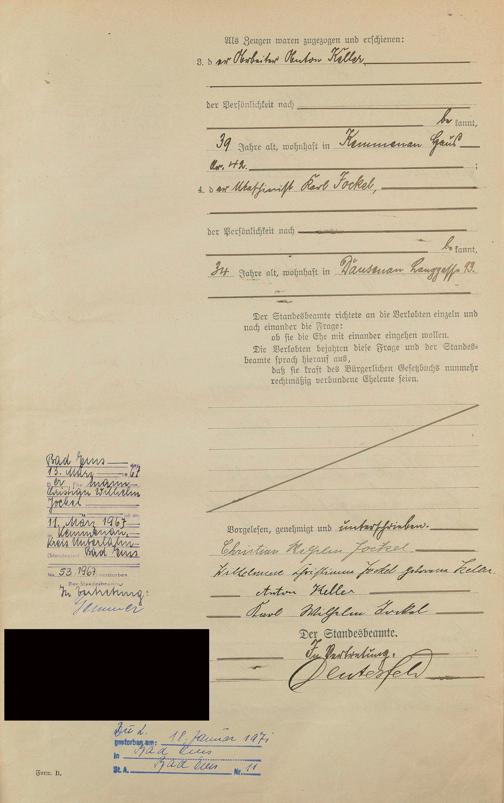 Als Zeugen waren zugezogen und erschienen:
3. der Arbeiter Anton Keller,
der Persönlichkeit nach
bekannt,
39 Jahre alt, wohnhaft in Kemmenau Haus
Nr. 42. ;
4. der Maschinist Karl Jockel,
der Persönlichkeit nach
bekannt,
34 Jahre alt, wohnhaft in Dausenau Langgasse 93.
Der Standesbeamte richtete an die Verlobten einzeln und
nach einander die Frage:
ob sie die Ehe mit einander eingehen wollen.
Die Verlobten bejahten diese Frage und der Standes-
beamte sprach hierauf aus,
daß sie kraft des Bürgerlichen Gesetzbuchs nunmehr
rechtmäßig verbundene Eheleute seien.
Vorgelesen, genehmigt und unterschrieben.
Christian Wilhelm Jockel
Christiane Jockel geborene Keller
Anton Keller
Karl Wilhelm Jockel
Der Standesbeamte.
In Vertretung.
Bad Ems
13. März 67
Der Ehemann
Christian Wilhelm
Jockel
11. März 1967
Kemmenau,
Kreis Unterlahn
(Standesamt Bad Ems
Nr. 53/1967 verstorben
Der Standesbeamte
In Vertretung:
18. Januar 1971
gestorben am:
in Bad Ems
St. A. Bad Ems Nr. 11
Form. B.